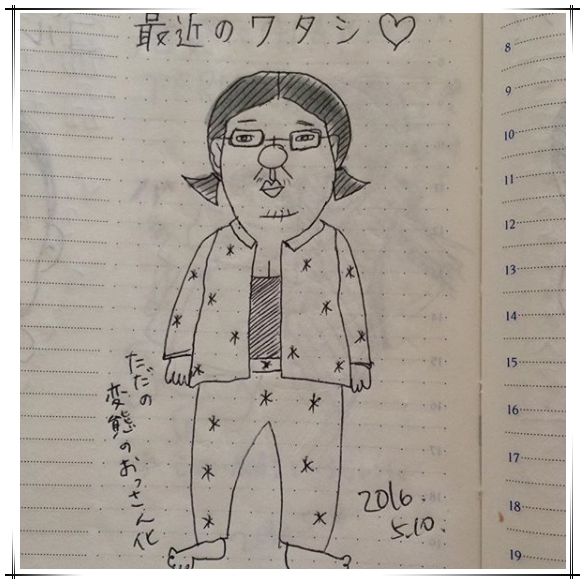 最近のワタシ♡
ただの
変態のおっさん化
2016
5.10.
8
9
10
11
12
13
14
15
16
17
18
19